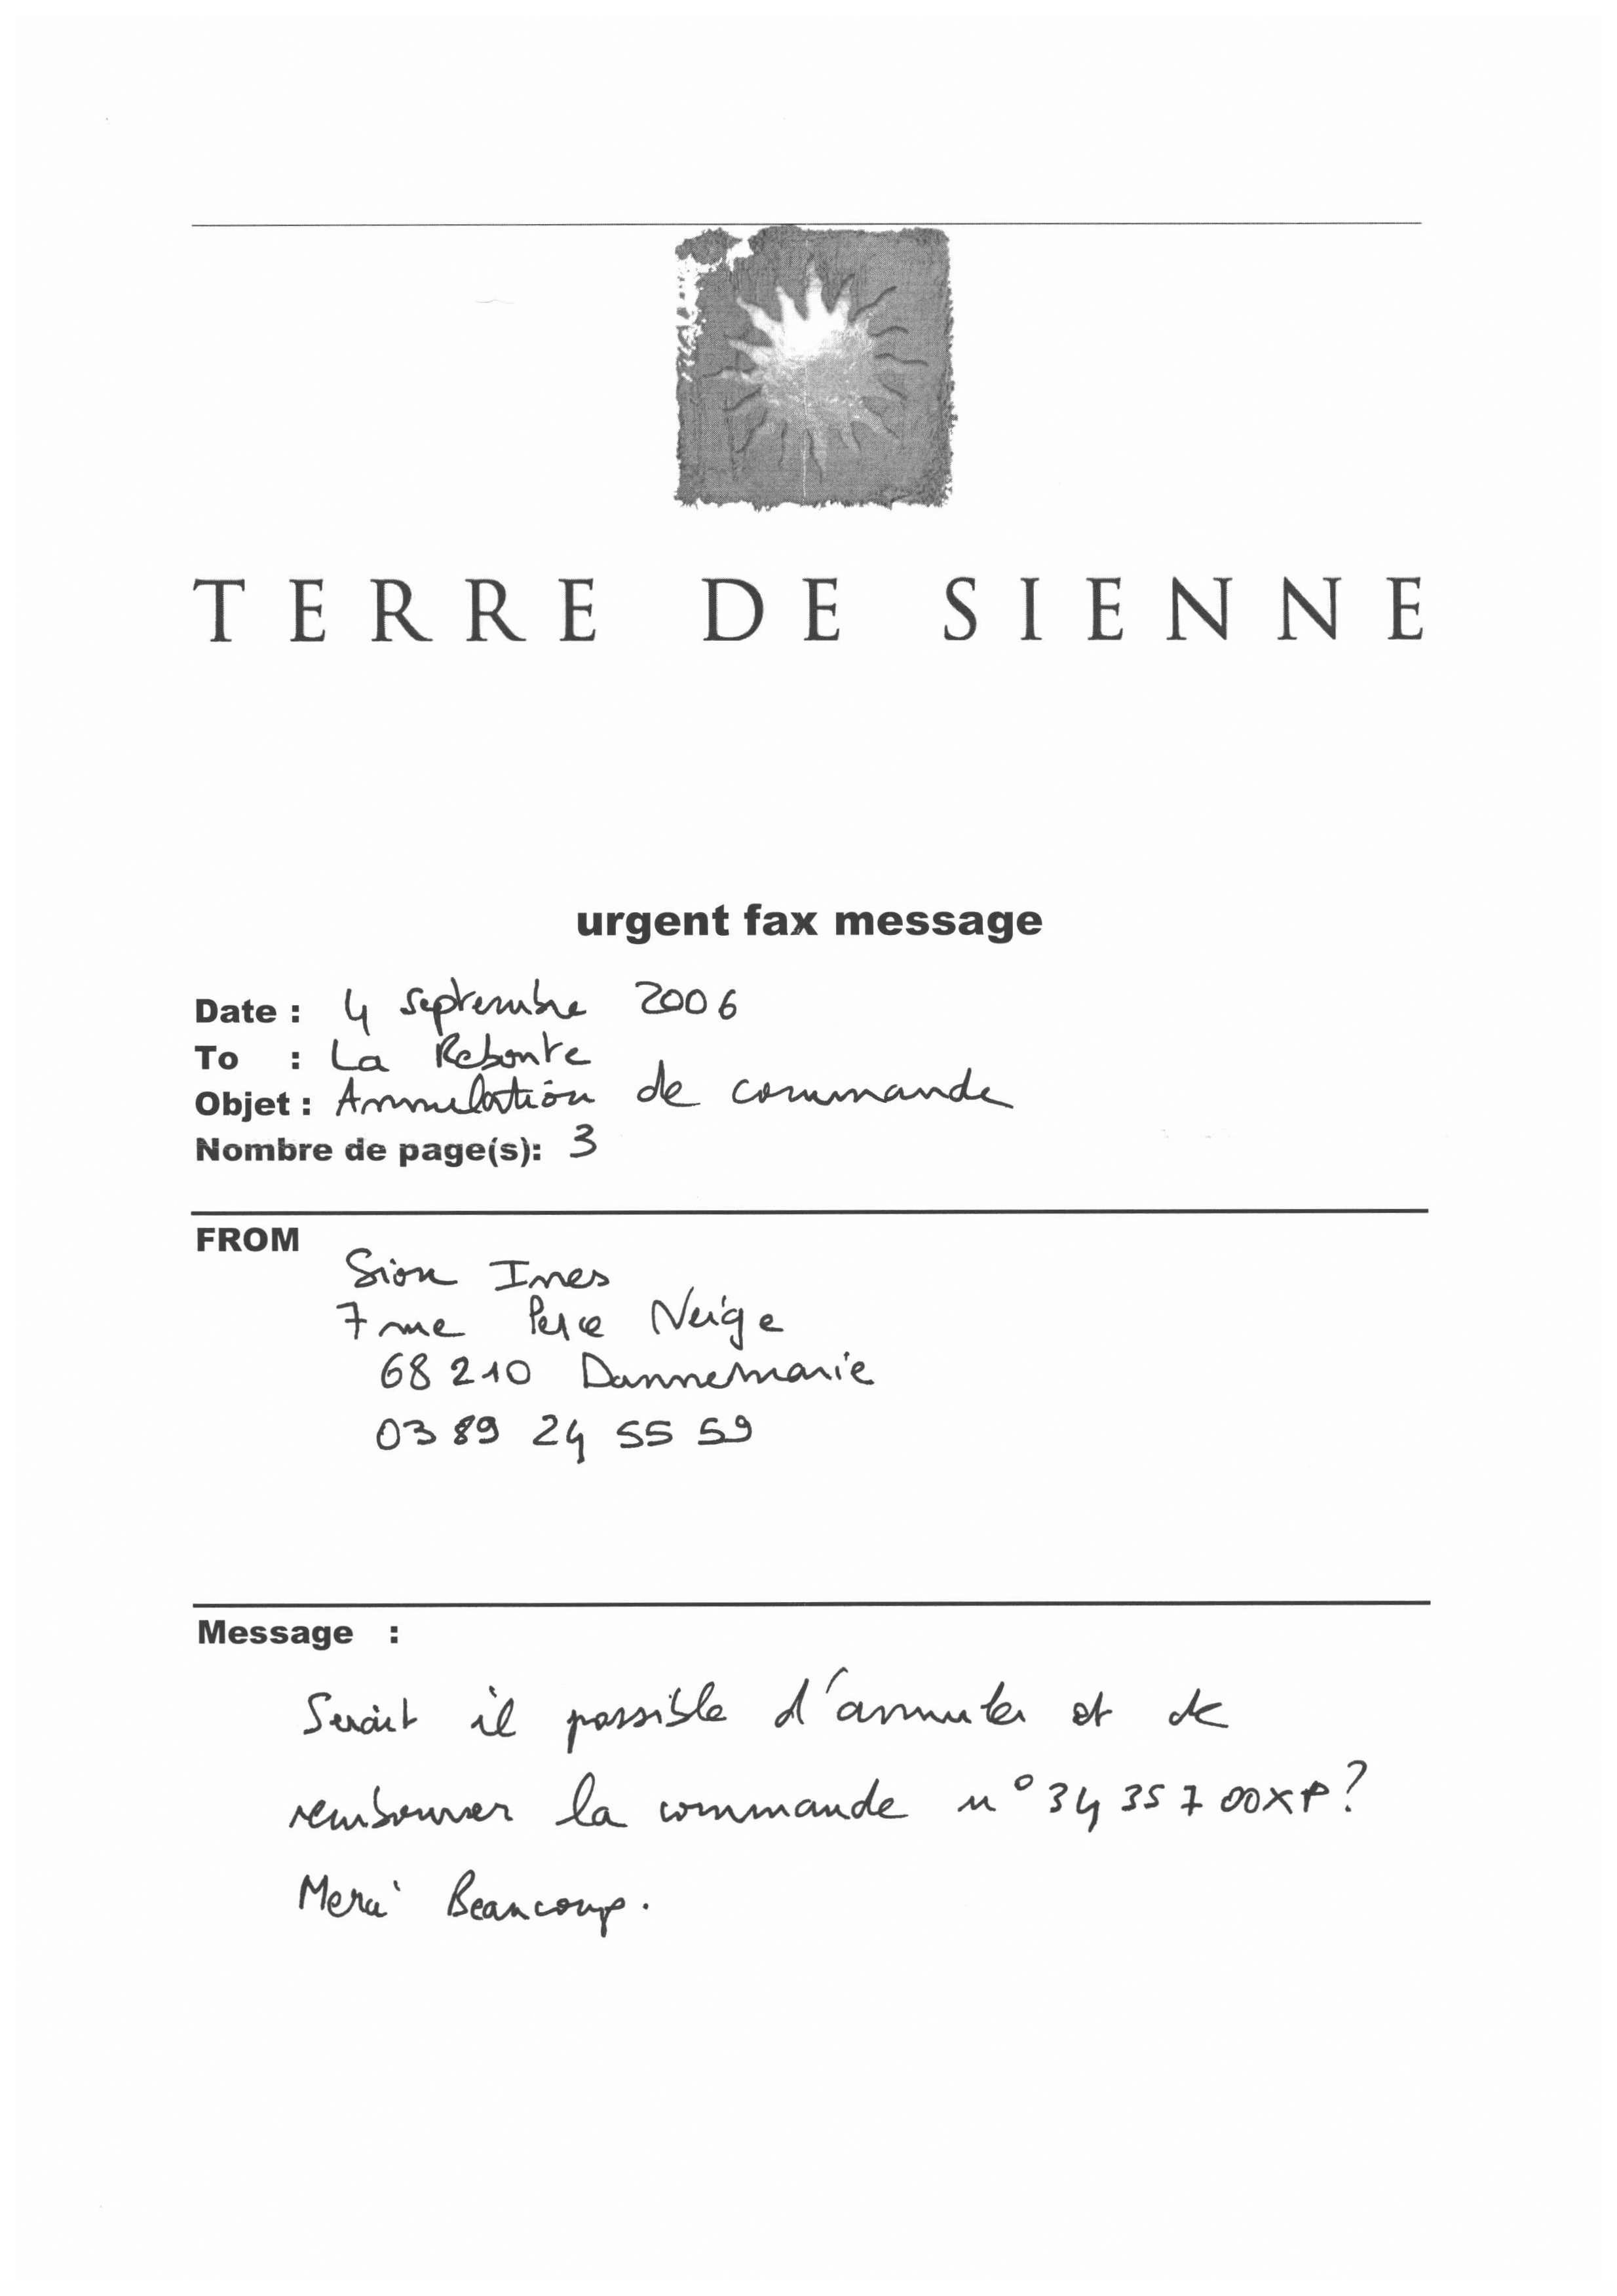 TERRE DE SIENNE
urgent fax message
Date : 4 septembre 2006
To : La Redoute
Objet : Annulation de commande
Nombre de page(s): 3
FROM
Sion Ines
7 rue Perce Neige
68 210 Dannemarie
03 89 24 55 59
Message :
Serait il possible d'annuler et de
rembourser la commande n° 34 35 7 00XP?
Merci Beaucoup.